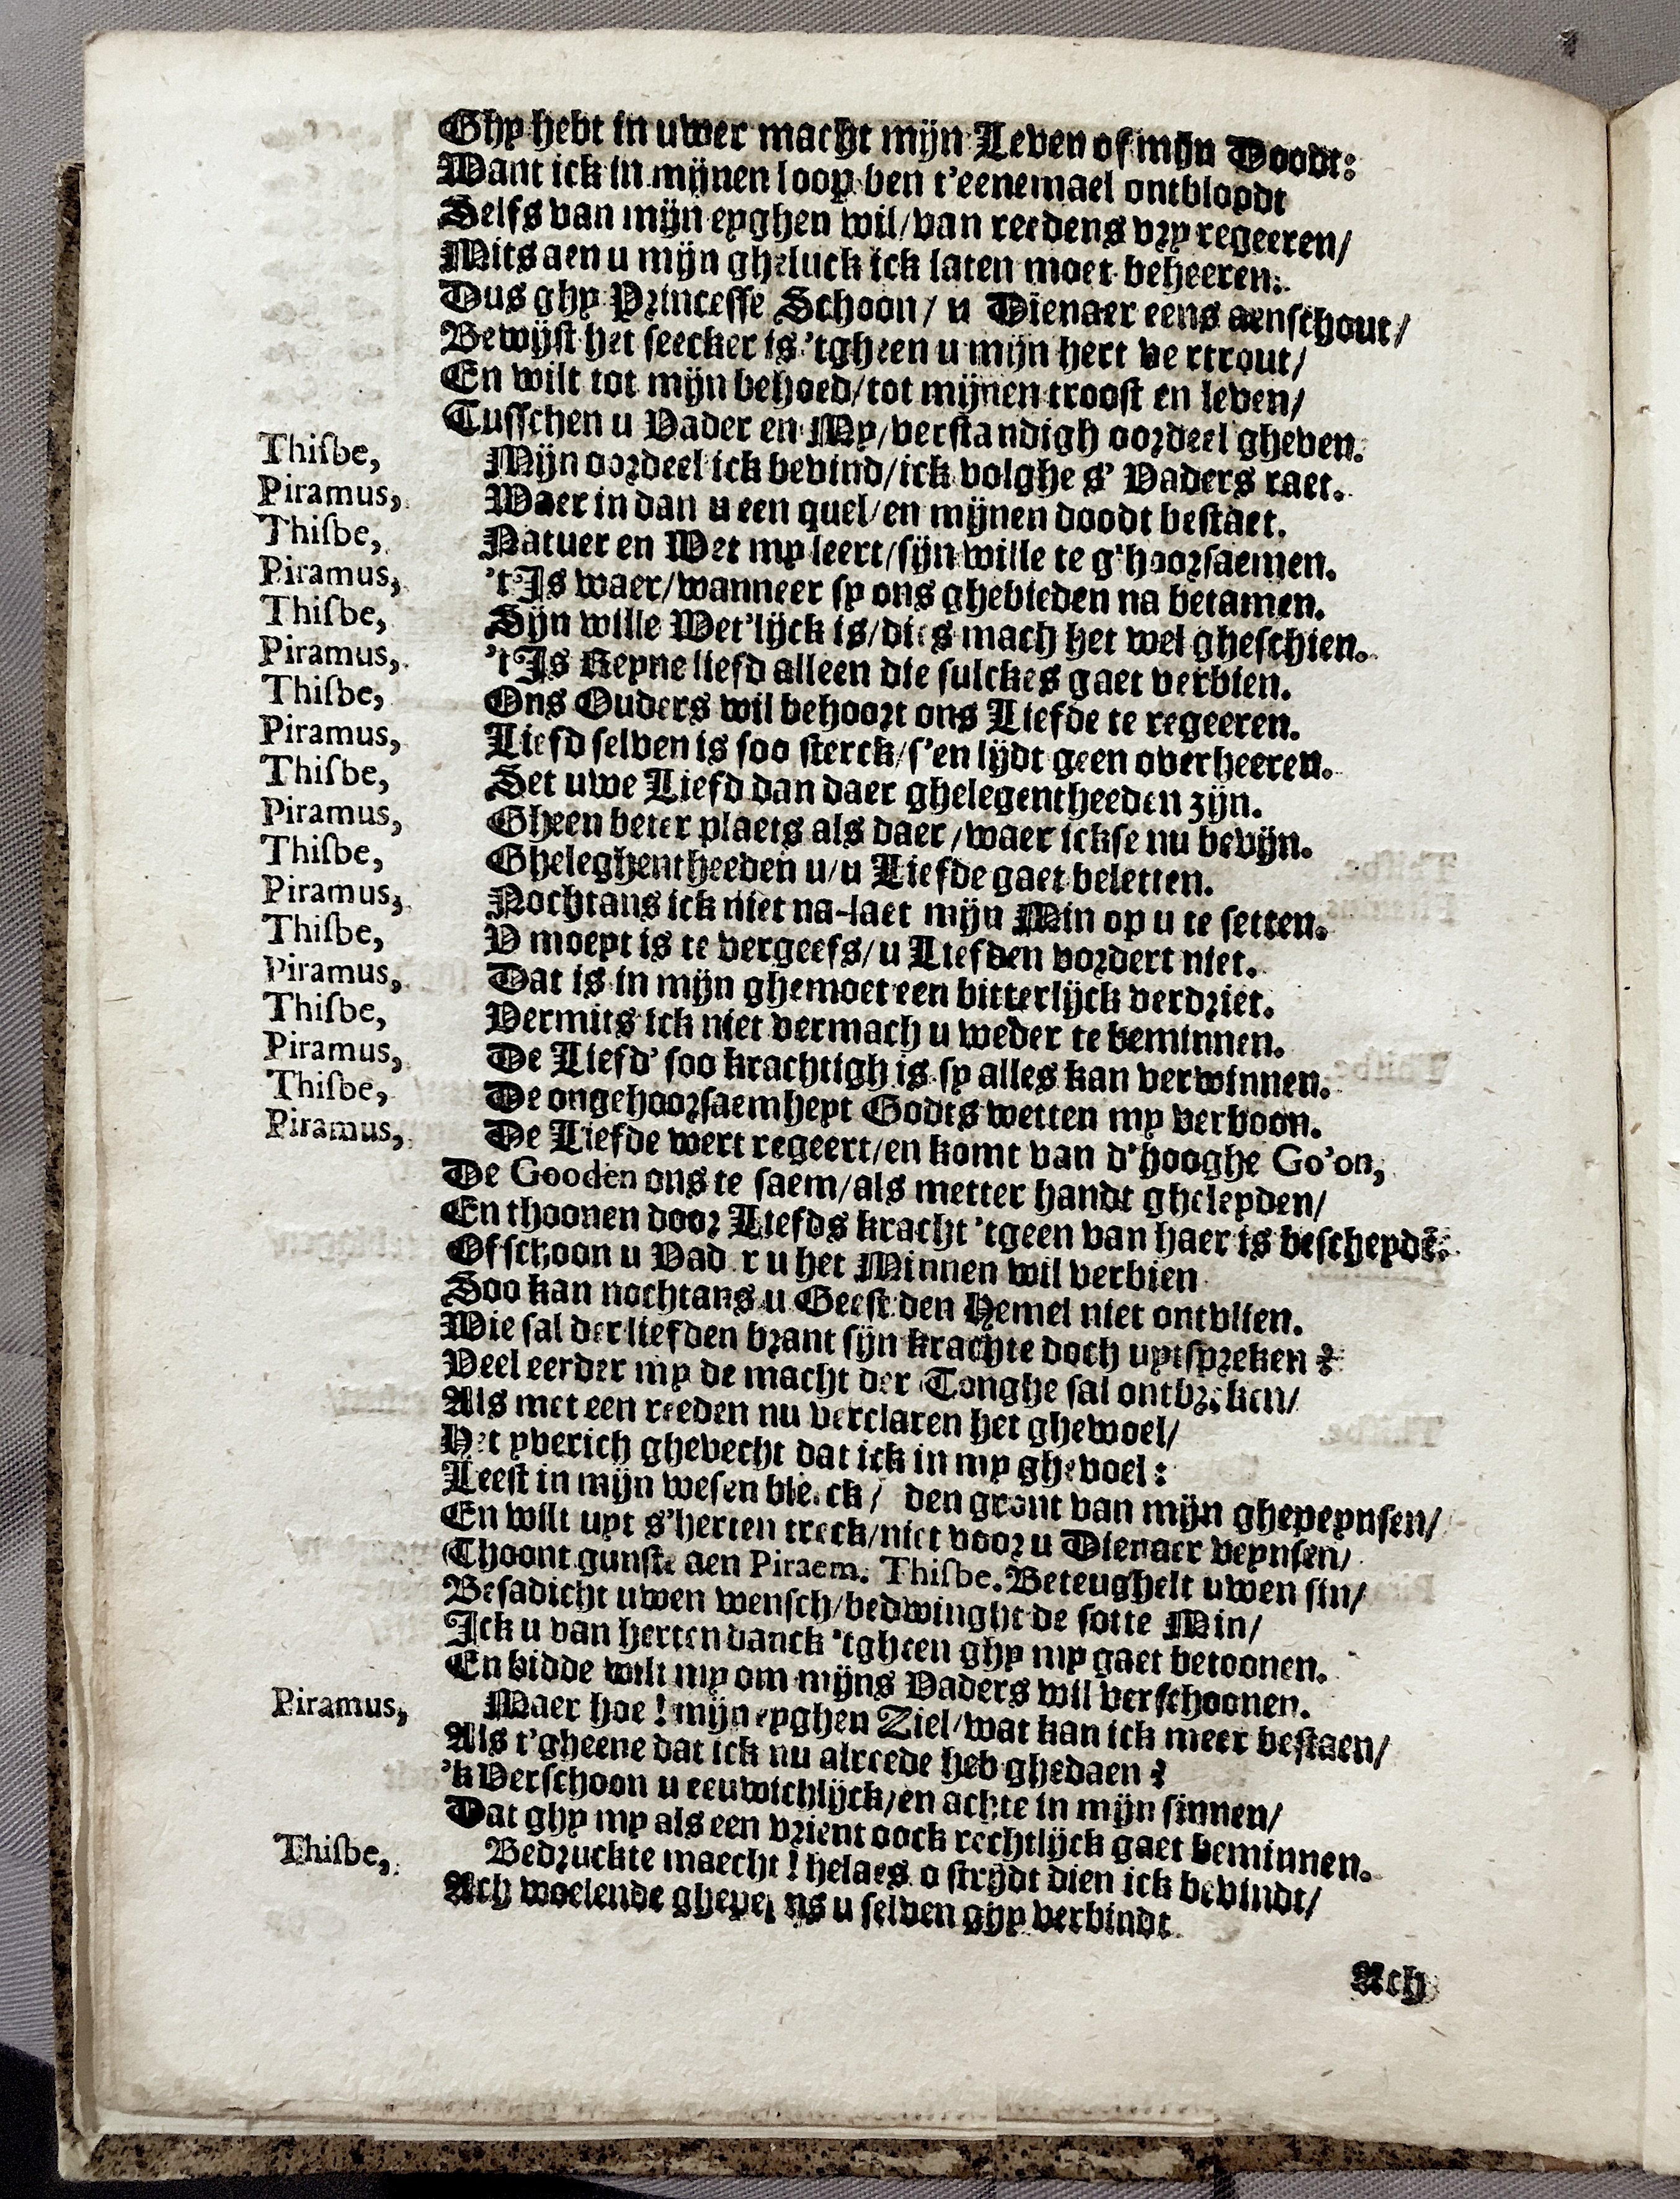 Ghy hebt in uwer macht mijn Leven of mijn Doodt:
Want ick in mijnen loop ben t'eenemael ontbloodt
Selfs van mijn eyghen wil/van reedens vry regeeren/
Mits aen u mijn gheluck ick laten moet beheeren:
Dus ghy Princesse Schoon/ u Dienaer eens aenschout/
Bewijst het seecker is 'tgheen u mijn hert vertrout/
En wilt tot mijn behoed/tot mijnen troost en leven/
Tusschen u Vader en My/verstandigh oordeel gheven.
Thisbe, Mijn oordeel ick bevind/ick volghe s' Vaders raet.
Piramus, Waer in dan u een quel/en mijnen doodt bestaet.
Thisbe, Natuer en Wet my leert/sijn wille te g'hoorsaemen.
Piramus, 't Is waer/wanneer sy ons ghebieden na betamen.
Thisbe, Sijn wille Wet'lijck is/dies mach het wel gheschien.
Piramus, 't Is Reyne liefd alleen die sulckes gaet verbien.
Thisbe, Ons Ouders wil behoort ons Liefde te regeeren.
Piramus, Liefd selven is soo sterck/s'en lijdt geen overheeren.
Thisbe, Set uwe Liefd dan daer ghelegentheeden zijn.
Piramus, Gheen beter plaets als daer/waer ickse nu bevijn.
Thisbe, Gheleghentheeden u/u Liefde gaet beletten.
Piramus, Nochtans ick niet na-laet mijn Min op u te setten.
Thisbe, V moeyt is te vergeefs/u Liefden vordert niet.
Piramus, Dat is in mijn ghemoet een bitterlijck verdriet.
Thisbe, Vermits ick niet vermach u weder te beminnen.
Piramus, De Liefd' soo krachtigh is sy alles kan verwinnen.
Thisbe, De ongehoorsaemheyt Godts wetten my verboon.
Piramus, De Liefde wert regeert/en komt van d'hooghe Go'on,
De Gooden ons te saem/als metter handt gheleyden/
En thoonen door Liefds kracht 'tgeen van haer is bescheydē:
Of schoon u Vad r u het Minnen wil verbien
Soo kan nochtans u Geest den Hemel niet ontvlien.
Wie sal der liefden brant sijn krachte doch uytspreken?
Veel eerder my de macht der Tonghe sal ontbreken/
Als met een reeden nu verclaren het ghewoel/
Het yverich ghevecht dat ick in my ghevoel:
Leest in mijn wesen bleeck/ den gront van mijn ghepeynsen/
En wilt uyt s'herten treck/niet voor u Dienaer veynsen/
Thoont gunste aen Piraem. Thisbe. Beteughelt uwen sin/
Besadicht uwen wensch/bedwinght de sotte Min/
Ick u van herten danck 'tgheen ghy my gaet betoonen.
En bidde wilt my om mijns Vaders wil verschoonen.
Piramus, Maer hoe! mijn eyghen Ziel/wat kan ick meer bestaen/
Als t'gheene dat ick nu alreede heb ghedaen?
'k Verschoon u eeuwichlijck/en achte in mijn sinnen/
Dat ghy my als een vrient oock rechtlijck gaet beminnen.
Thisbe, Bedruckte maecht! helaes o strijdt dien ick bevindt/
Ach woelende ghepeyns u selven ghy verbindt
Ach